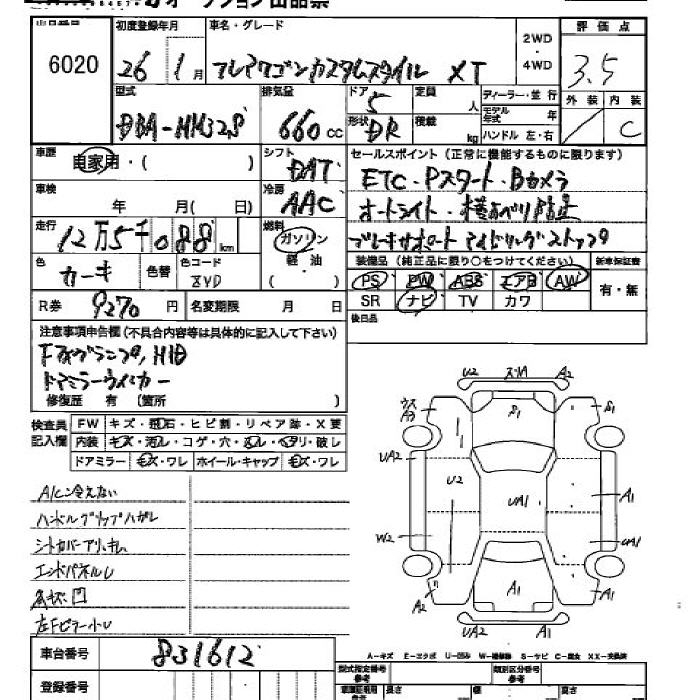 オークション出品票
出品番号 初度登録年月 車名・グレード 2WD 評価点
6020 26年 1月 フレアワゴンカスタムスタイル XT 4WD 3.5
型式 排気量 ドア 定員 ディーラー・並行 外装 内装
DBA-MM32S 660cc 5 人 モデル年式 年
形状 DR 積載 kg ハンドル 左・右 C
車歴 自家用・( ) シフト DAT セールスポイント(正常に機能するものに限ります)
車検 年 月( 日) 冷房 AAC ETC・Pスタート・Bカメラ
オートライト・横すべり防止
走行 12万5千088km 燃料 ガソリン 軽油 ( ) ブレーキサポート アイドリングストップ
色 カーキ 色替 色コード ZVD 装備品(純正品に限り○をつけてください) 新車保証書
PS PW ABS エアB AW 有・無
R券 9270円 名変期限 月 日 SR ナビ TV カワ
注意事項申告欄(不具合内容等は具体的に記入して下さい) 後日品
Fフォグランプ, HID
ドアミラーウィンカー
修復歴 有 (箇所 )
検査員記入欄 FW キズ・飛石・ヒビ割・リペア跡・X要
内装 キズ・汚レ・コゲ・穴・ヌレ・ヘタリ・破レ
ドアミラー キズ・ワレ ホイール・キャップ キズ・ワレ
A/C冷えない
ハンドルグリップハガレ
シートカバーアリ
エンドパネルU
各所凹
左Fピラー小U
U2 A2
S1 S1
UA2 U2 UA1 A1
W2 UA1
A2 A1
UA2 A1
A-キズ E-エクボ U-凹み W-補修跡 S-サビ C-腐食 XX-交換済
車台番号 831612 型式指定番号 参考 類別区分番号 参考
登録番号 長さ 幅 高さ